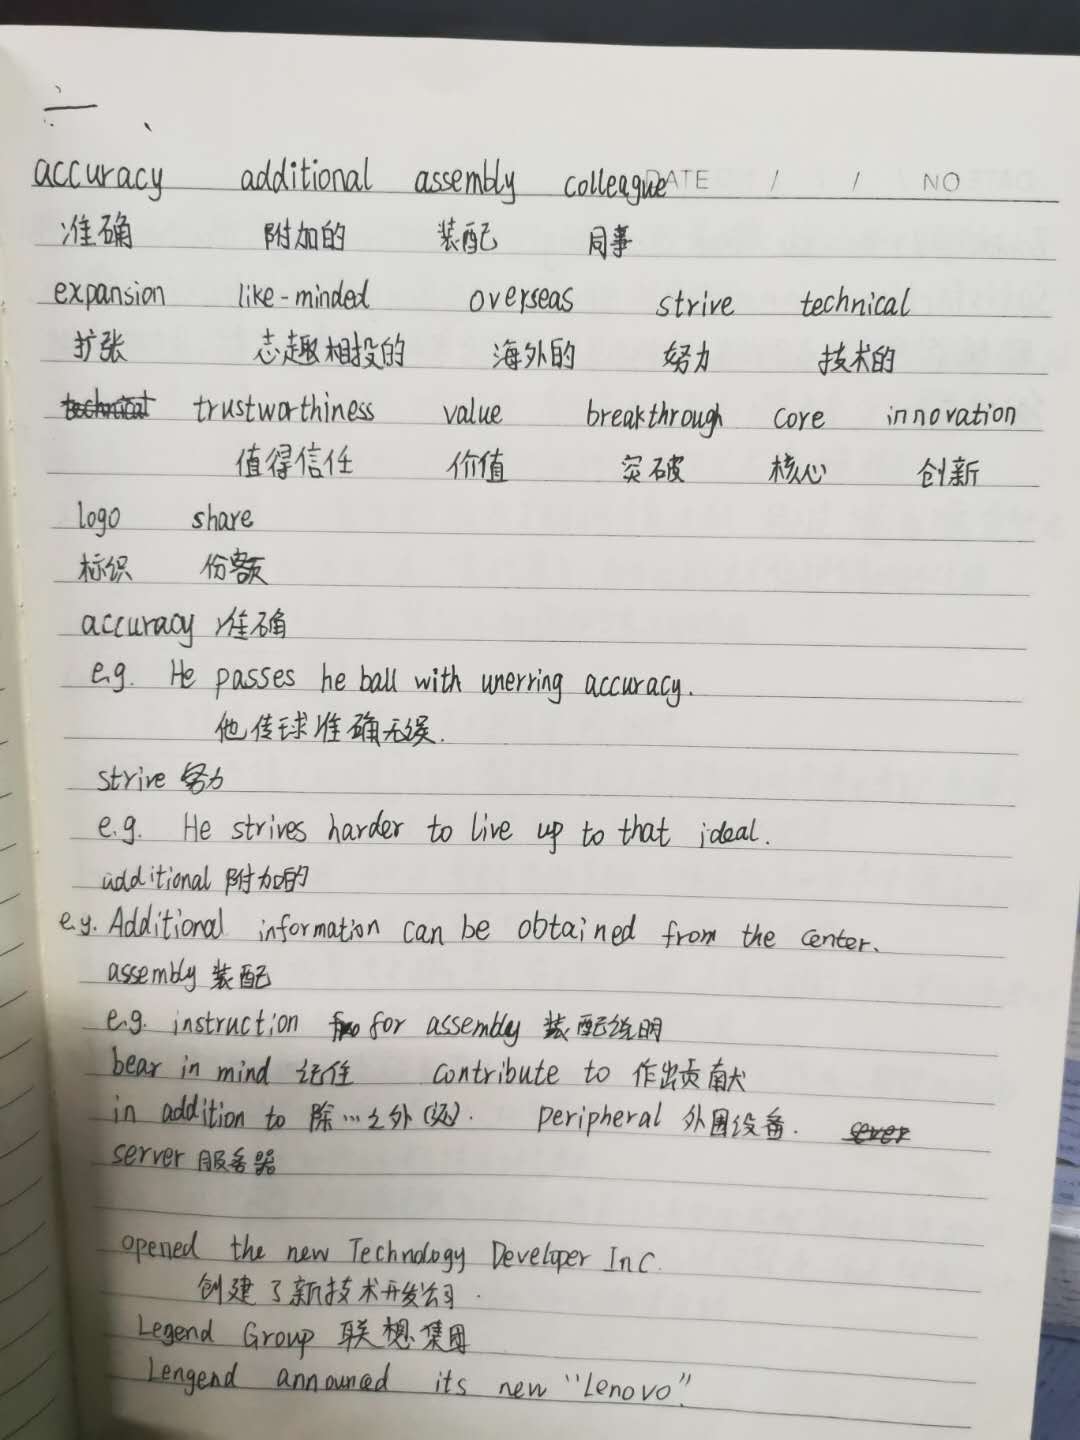 二、
accuracy additional assembly colleague DATE / / NO
准确 附加的 装配 同事
expansion like-minded overseas strive technical
扩张 志趣相投的 海外的 努力 技术的
technical trustworthiness value breakthrough core innovation
值得信任 价值 突破 核心 创新
logo share
标识 份额
accuracy 准确
e.g. He passes he ball with unerring accuracy.
他传球准确无误.
strive 努力
e.g. He strives harder to live up to that ideal.
additional 附加的
e.g. Additional information can be obtained from the center.
assembly 装配
e.g. instruction for assembly 装配说明
bear in mind 记住 contribute to 作出贡献
in addition to 除…之外(还). peripheral 外围设备. sever
server 服务器
opened the new Technology Developer Inc.
创建了新技术开发公司.
Legend Group 联想集团
Lengend announced its new "Lenovo".